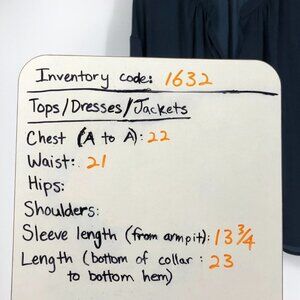 Inventory code: 1632
Tops/Dresses/Jackets
Chest (A to A): 22
Waist: 21
Hips:
Shoulders:
Sleeve length (from armpit): 13 3/4
Length (bottom of collar : 23
to bottom hem)